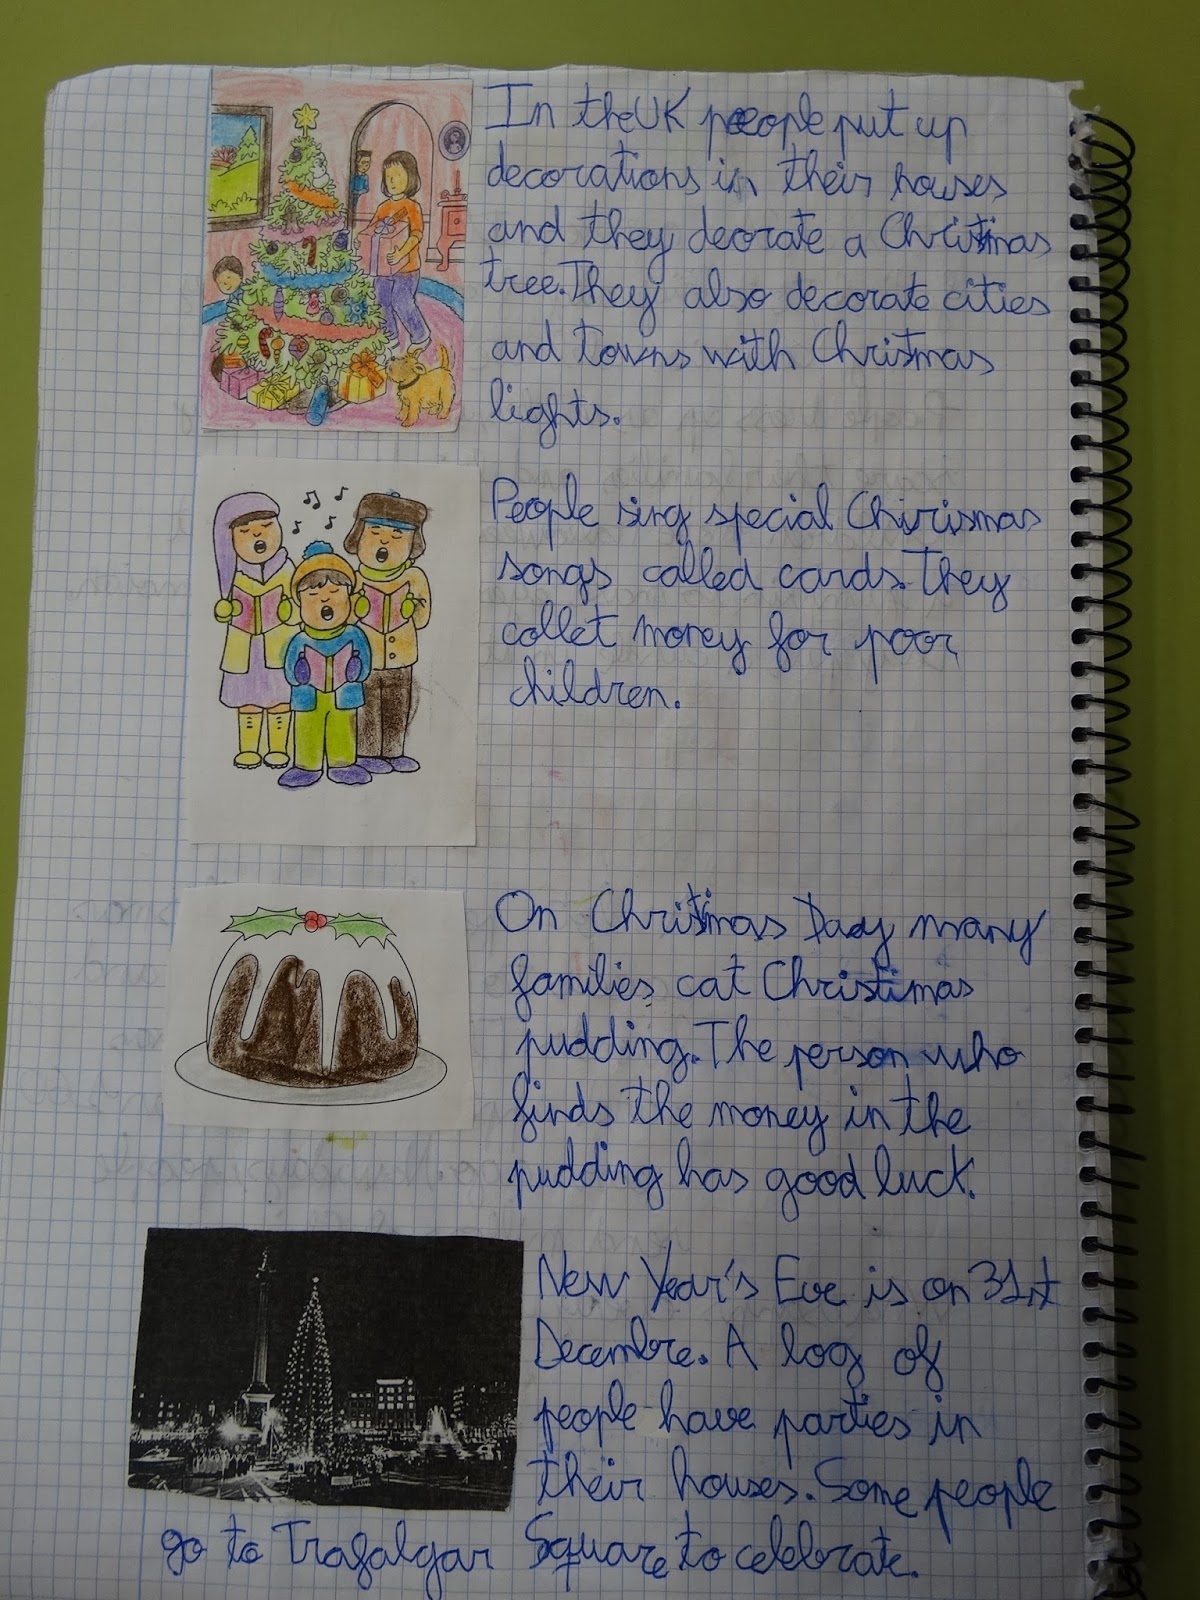 In the UK peeople put up
decorations in their houses
and they deorate a Christmas
tree. They also decorate cities
and towns with Christmas
lights.
People sing special Chirismas
songs called cards. They
collet money for poor
children.
On Christmas Day many
families cat Christimas
pudding. The person who
finds the money in the
pudding has good luck.
New Year's Eve is on 31st
Decembre. A log of
people have parties in
their houses. Some people
go to Trafalgar Square to celebrate.